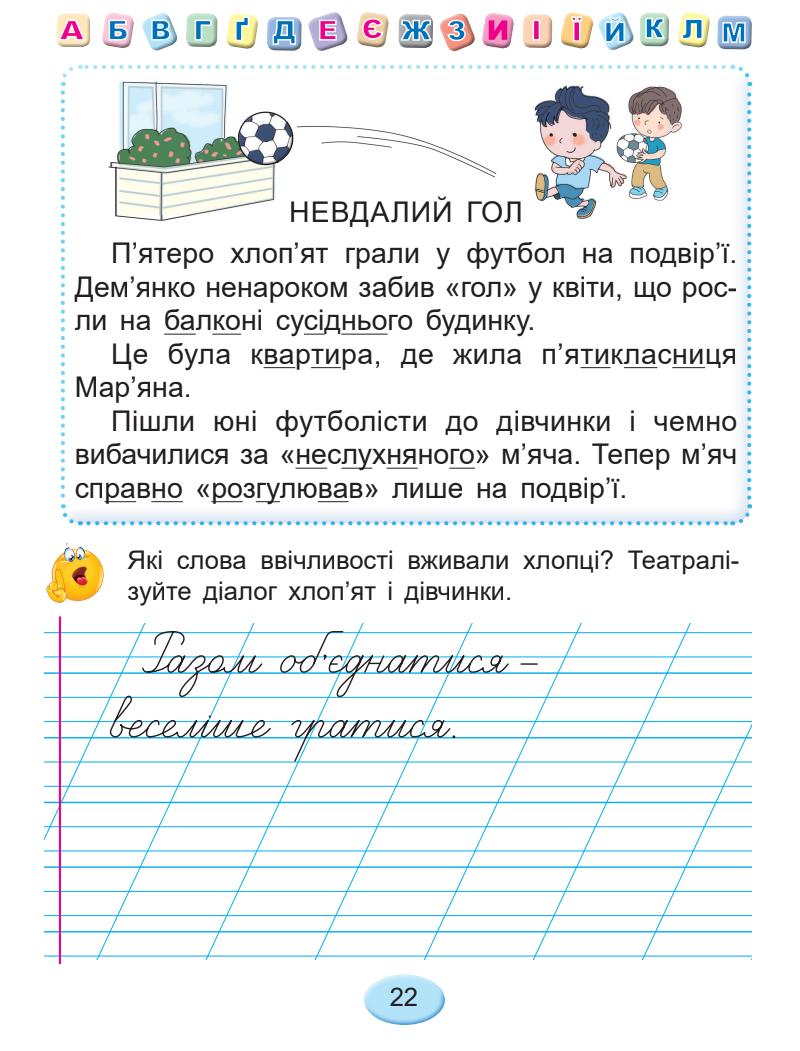 А Б В Г Ґ Д Е Є Ж З И І Ї Й К Л М
НЕВДАЛИЙ ГОЛ
П’ятеро хлоп’ят грали у футбол на подвір’ї.
Дем’янко ненароком забив «гол» у квіти, що рос-
ли на балконі сусіднього будинку.
Це була квартира, де жила п’ятикласниця
Мар’яна.
Пішли юні футболісти до дівчинки і чемно
вибачилися за «неслухняного» м’яча. Тепер м’яч
справно «розгулював» лише на подвір’ї.
Які слова ввічливості вживали хлопці? Театралі-
зуйте діалог хлоп’ят і дівчинки.
Разом об’єднатися –
веселіше гратися.
22